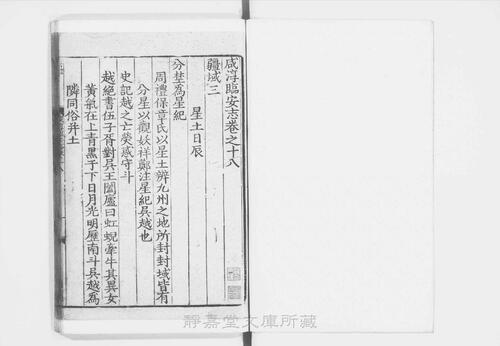 咸淳臨安志卷之十八
疆域三
星土日辰
分埜為星紀
周禮保章氏以星土辨九州之地所封封域皆有
分星以觀妖祥鄭注星紀吳越也
史記越之亡熒惑守斗
越絶書伍子胥對吳王闔廬曰虹蜺牽牛其異女
黄氣在上青黑于下日月光明歷南斗吳越為
隣同俗并土
靜嘉堂文庫所藏